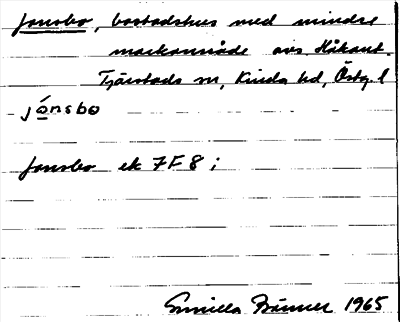 Jonsbo, bostadshus med mindre
markområde avs. Håkant.
Tjärstads sn, Kinda hd, Östg. l
jónsbo
Jonsbo ek 7F8;
Gunilla 1965